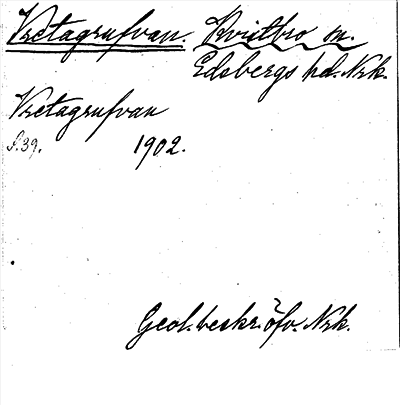 Vretagrufvan. Kvistbro sn.
Edsbergs hd. Nrk.
Vretagrufvan
s. 39. 1902.
Geol. beskr. öfv. Nrk.